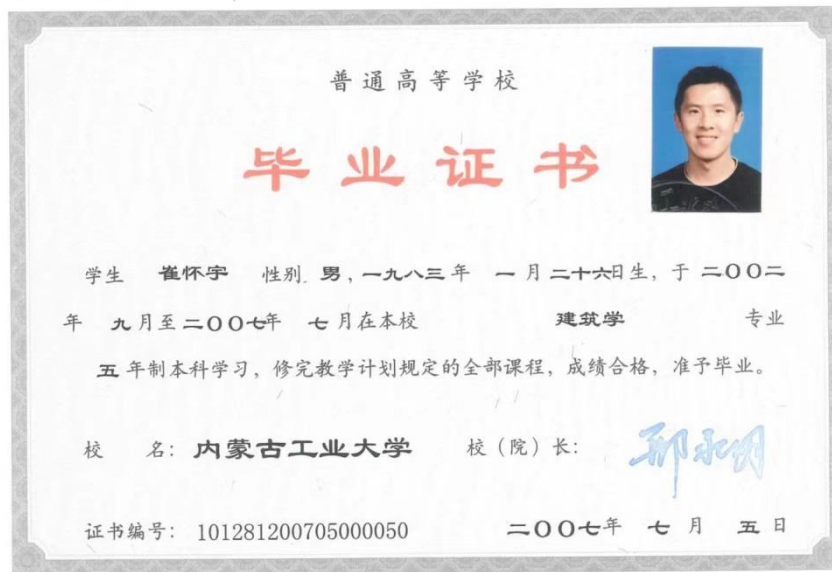 普通高等学校
毕业证书
学生 崔怀宇 性别 男，一九八三年 一月二十六日生，于 二〇〇二
年 九月至二〇〇七年 七月在本校 建筑学 专业
五年制本科学习，修完教学计划规定的全部课程，成绩合格，准予毕业。
校 名：内蒙古工业大学 校（院）长：邢永明
证书编号：101281200705000050 二〇〇七年 七月 五日